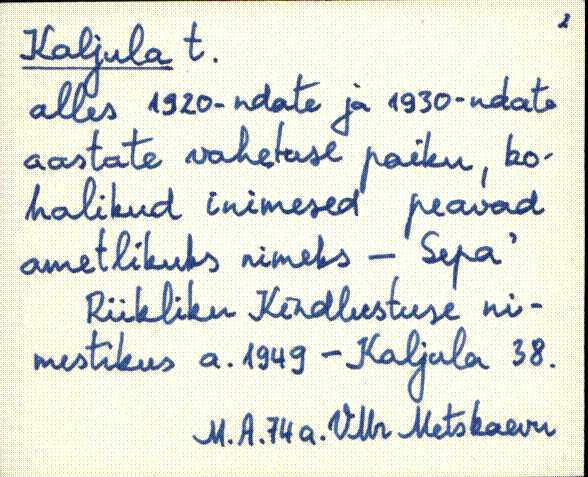 2
Kaljula t.
alles 1920-ndate ja 1930-ndate
aastate vahetuse paiku, ko-
halikud inimesed peavad
ametlikuks nimeks – Sepa'
Riikliku Kindlustuse ni-
mestikus a. 1949 – Kaljula 38.
M.A. 74 a. VMr Metskaevu